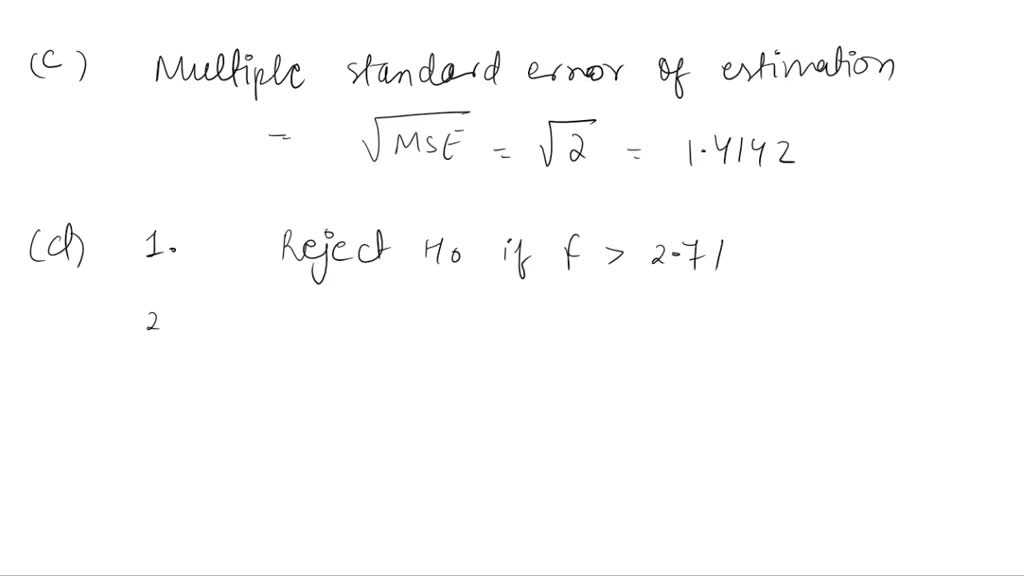 (c) Multiple standard error of estimation
= √MSE = √2 = 1.4142
(d) 1. Reject H0 if f > 2.71
2